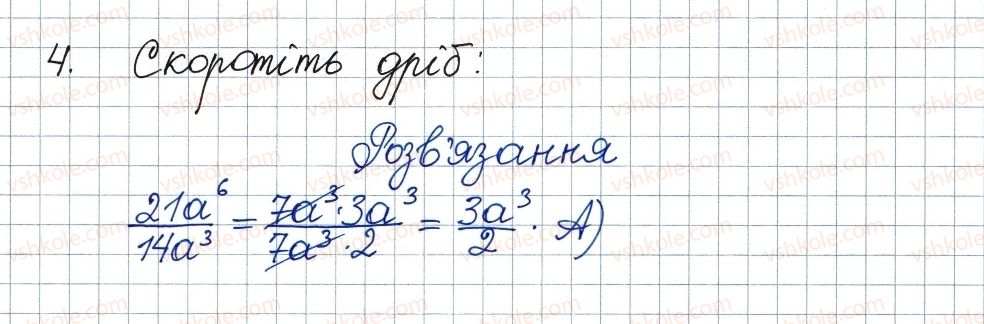 4. Скоротіть дріб:
Розв'язання
21a⁶/14a³ = 7a³·3a³/7a³·2 = 3a³/2. А)